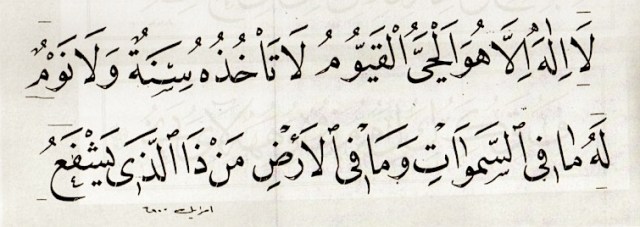 لَا اِلٰهَ اِلَّا هُوَ الْحَيُّ الْقَيُّومُ لَا تَأْخُذُهُ سِنَةٌ وَلَا نَوْمٌ
لَهُ مَا فِي السَّمٰوَاتِ وَمَا فِي الْاَرْضِ مَنْ ذَا الَّذِي يَشْفَعُ